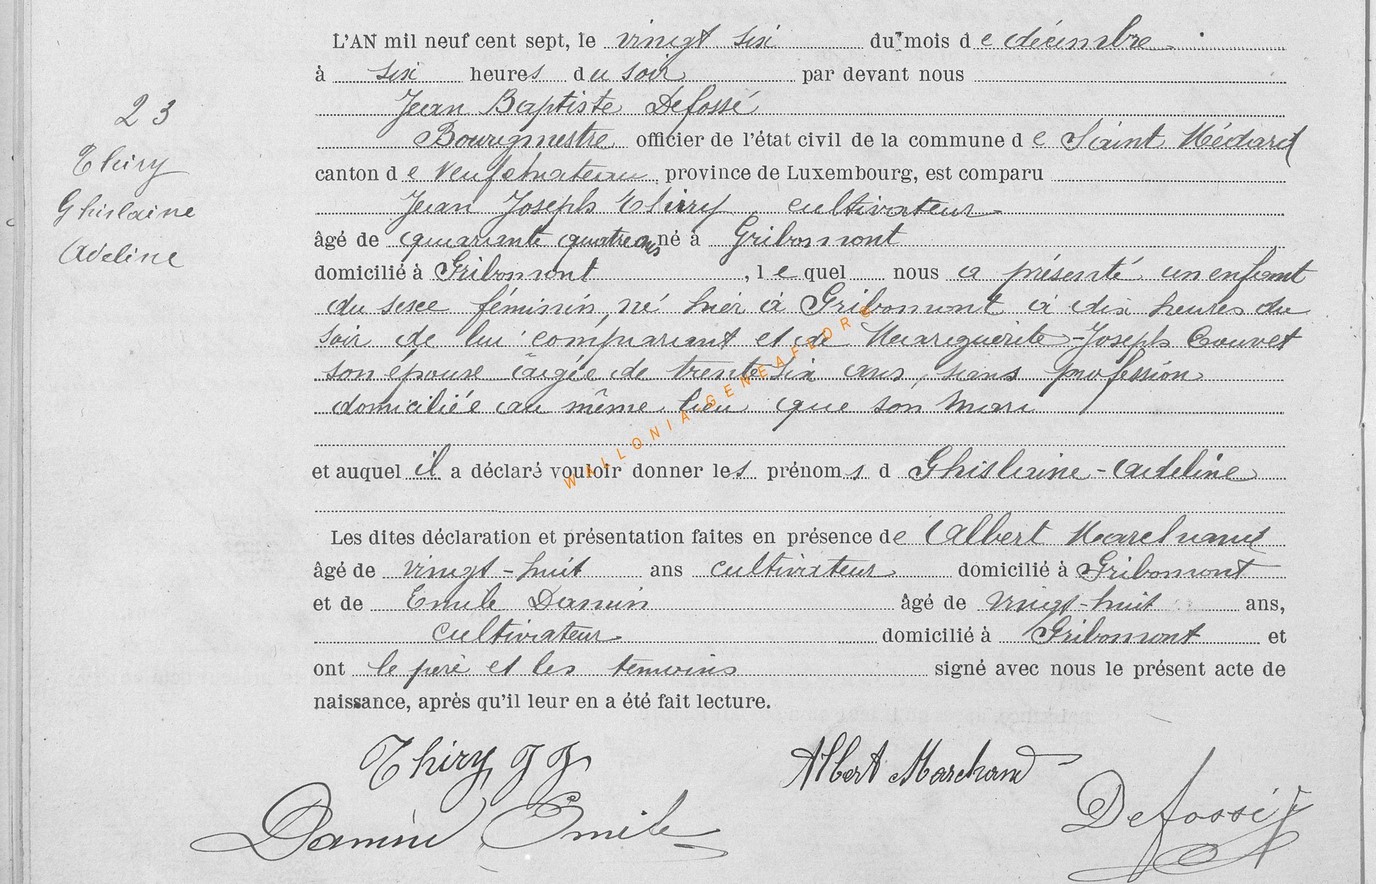 L'AN mil neuf cent sept, le vingt six du mois de décembre
à six heures du soir par devant nous
Jean Baptiste Defossé
23
Bourgmestre officier de l'état civil de la commune de Saint Médard
Thiry
canton de Neufchateau, province de Luxembourg, est comparu
Ghislaine
Jean Joseph Thiry cultivateur
Adeline
âgé de quarante quatre ans né à Gribomont
domicilié à Gribomont, lequel nous a présenté un enfant
du sexe féminin, né hier à Gribomont à dix heures du
soir de lui comparant et de Marguerite-Joseph Couvet
son épouse âgée de trente six ans, sans profession
domiciliée au même lieu que son mari
WALLONIA GENEAFLORE
et auquel il a déclaré vouloir donner les prénoms d Ghislaine-Adeline
Les dites déclaration et présentation faites en présence de Albert Marchand
âgé de vingt-huit ans cultivateur domicilié à Gribomont
et de Emile Damin âgé de vingt-huit ans,
cultivateur domicilié à Gribomont et
ont le père et les témoins signé avec nous le présent acte de
naissance, après qu'il leur en a été fait lecture.
Thiry JJ Albert Marchand
Damin Emile Defossé